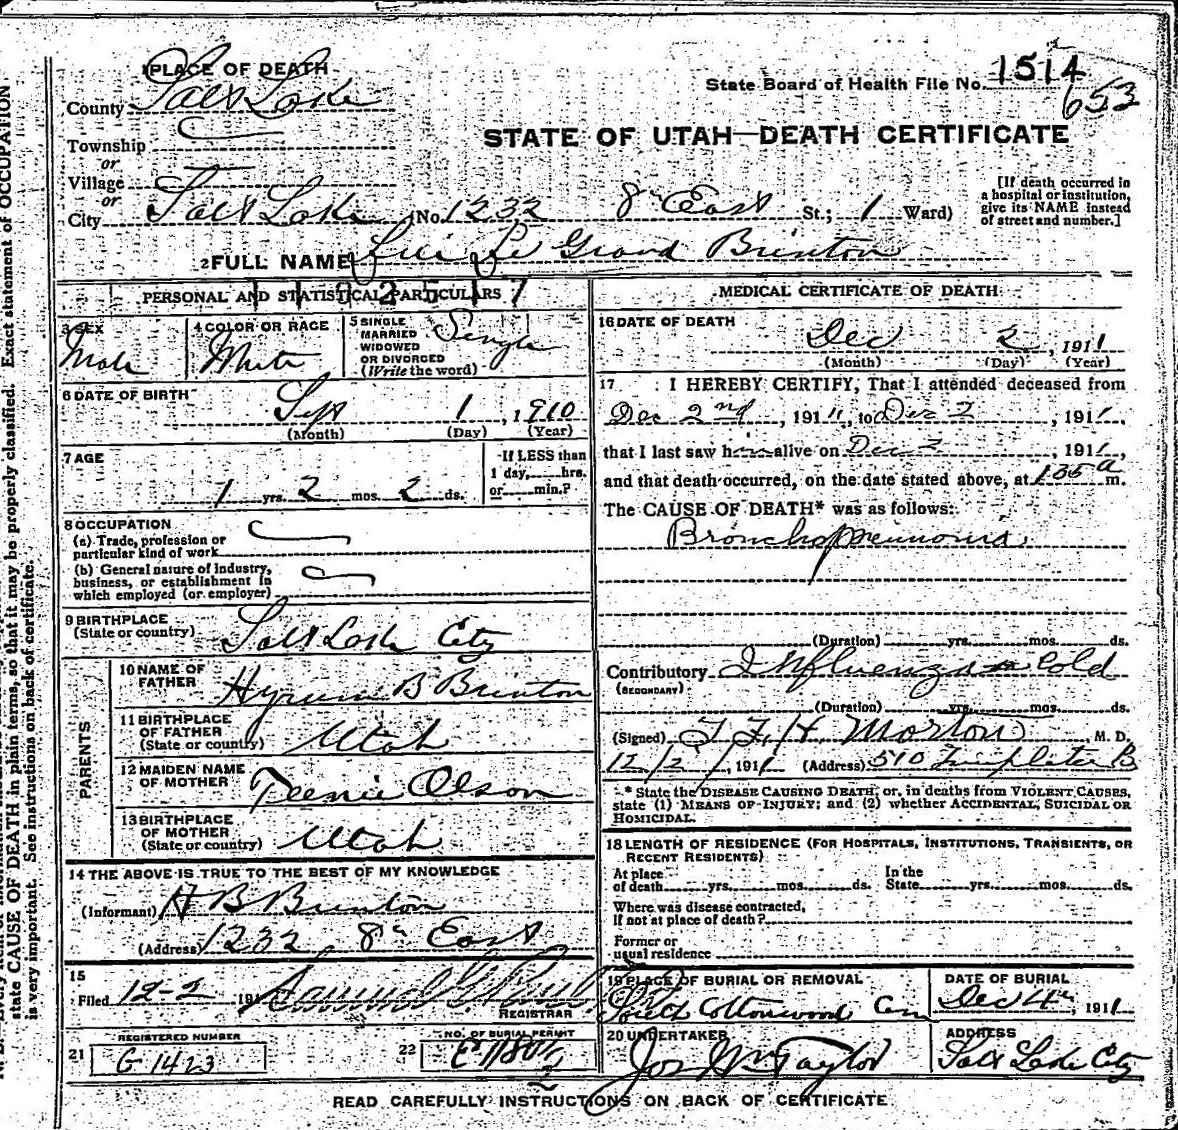 1 PLACE OF DEATH
County Salt Lake
State Board of Health File No. 1514
653
STATE OF UTAH—DEATH CERTIFICATE
Township
or
Village
or
City Salt Lake (No. 1232 8th East St.; 1 Ward)
[If death occurred in
a hospital or institution,
give its NAME instead
of street and number.]
2 FULL NAME Le Grand Brinton
PERSONAL AND STATISTICAL PARTICULARS
3 SEX
Male
4 COLOR OR RACE
White
5 SINGLE
MARRIED
WIDOWED
OR DIVORCED
(Write the word)
Single
6 DATE OF BIRTH
Sept 1, 1910
(Month) (Day) (Year)
7 AGE
1 yrs. 2 mos. 2 ds.
If LESS than
1 day, hrs.
or min.?
8 OCCUPATION
(a) Trade, profession or
particular kind of work
(b) General nature of industry,
business, or establishment in
which employed (or employer)
9 BIRTHPLACE
(State or country) Salt Lake City
PARENTS
10 NAME OF
FATHER
Hyrum B Brinton
11 BIRTHPLACE
OF FATHER
(State or country) Utah
12 MAIDEN NAME
OF MOTHER Teenie Olson
13 BIRTHPLACE
OF MOTHER
(State or country) Utah
14 THE ABOVE IS TRUE TO THE BEST OF MY KNOWLEDGE
(Informant) H B Brinton
(Address) 1232 8th East
15
Filed 12-2 191
REGISTRAR
REGISTERED NUMBER
21 G 1423
NO. OF BURIAL PERMIT
22
MEDICAL CERTIFICATE OF DEATH
16 DATE OF DEATH
Dec 2, 1911
(Month) (Day) (Year)
17 I HEREBY CERTIFY, That I attended deceased from
Dec 2nd, 1911, to Dec 2, 1911
that I last saw h alive on Dec 2, 1911,
and that death occurred, on the date stated above, at 135 a m.
The CAUSE OF DEATH* was as follows:
Bronchopneumonia
(Duration) yrs. mos. ds.
Contributory Influenza Cold
(SECONDARY)
(Duration) yrs. mos. ds.
(Signed) T. F. H. Morton, M. D.
12/2, 1911 (Address) 510 Templeton B
* State the DISEASE CAUSING DEATH; or, in deaths from VIOLENT CAUSES,
state (1) MEANS OF INJURY; and (2) whether ACCIDENTAL, SUICIDAL OR
HOMICIDAL.
18 LENGTH OF RESIDENCE (FOR HOSPITALS, INSTITUTIONS, TRANSIENTS, OR
RECENT RESIDENTS)
At place
of death yrs. mos. ds.
In the
State yrs. mos. ds.
Where was disease contracted,
if not at place of death?
Former or
usual residence
19 PLACE OF BURIAL OR REMOVAL
South Cottonwood Cem
DATE OF BURIAL
Dec 4th, 1911
20 UNDERTAKER
Jos Wm Taylor
ADDRESS
Salt Lake City
READ CAREFULLY INSTRUCTIONS ON BACK OF CERTIFICATE
Exact statement of OCCUPATION
state CAUSE OF DEATH in plain terms, so that it may be properly classified.
is very important. See instructions on back of certificate.